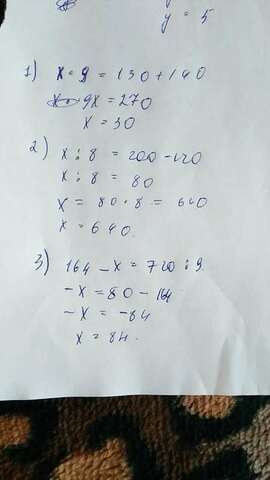 y = 5
1) x · 9 = 130 + 140
9x = 270
x = 30
2) x : 8 = 200 - 120
x : 8 = 80
x = 80 · 8 = 640
x = 640.
3) 164 - x = 720 : 9.
-x = 80 - 164
-x = -84
x = 84.